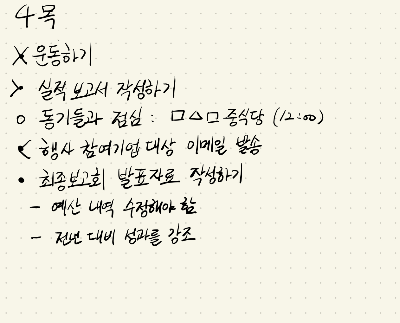 4 목
× 운동하기
> 실적 보고서 작성하기
○ 동기들과 점심 : □△□ 중식당 (12:00)
< 행사 참여기업 대상 이메일 발송
• 최종보고회 발표자료 작성하기
- 예산 내역 수정해야 함
- 전년 대비 성과를 강조